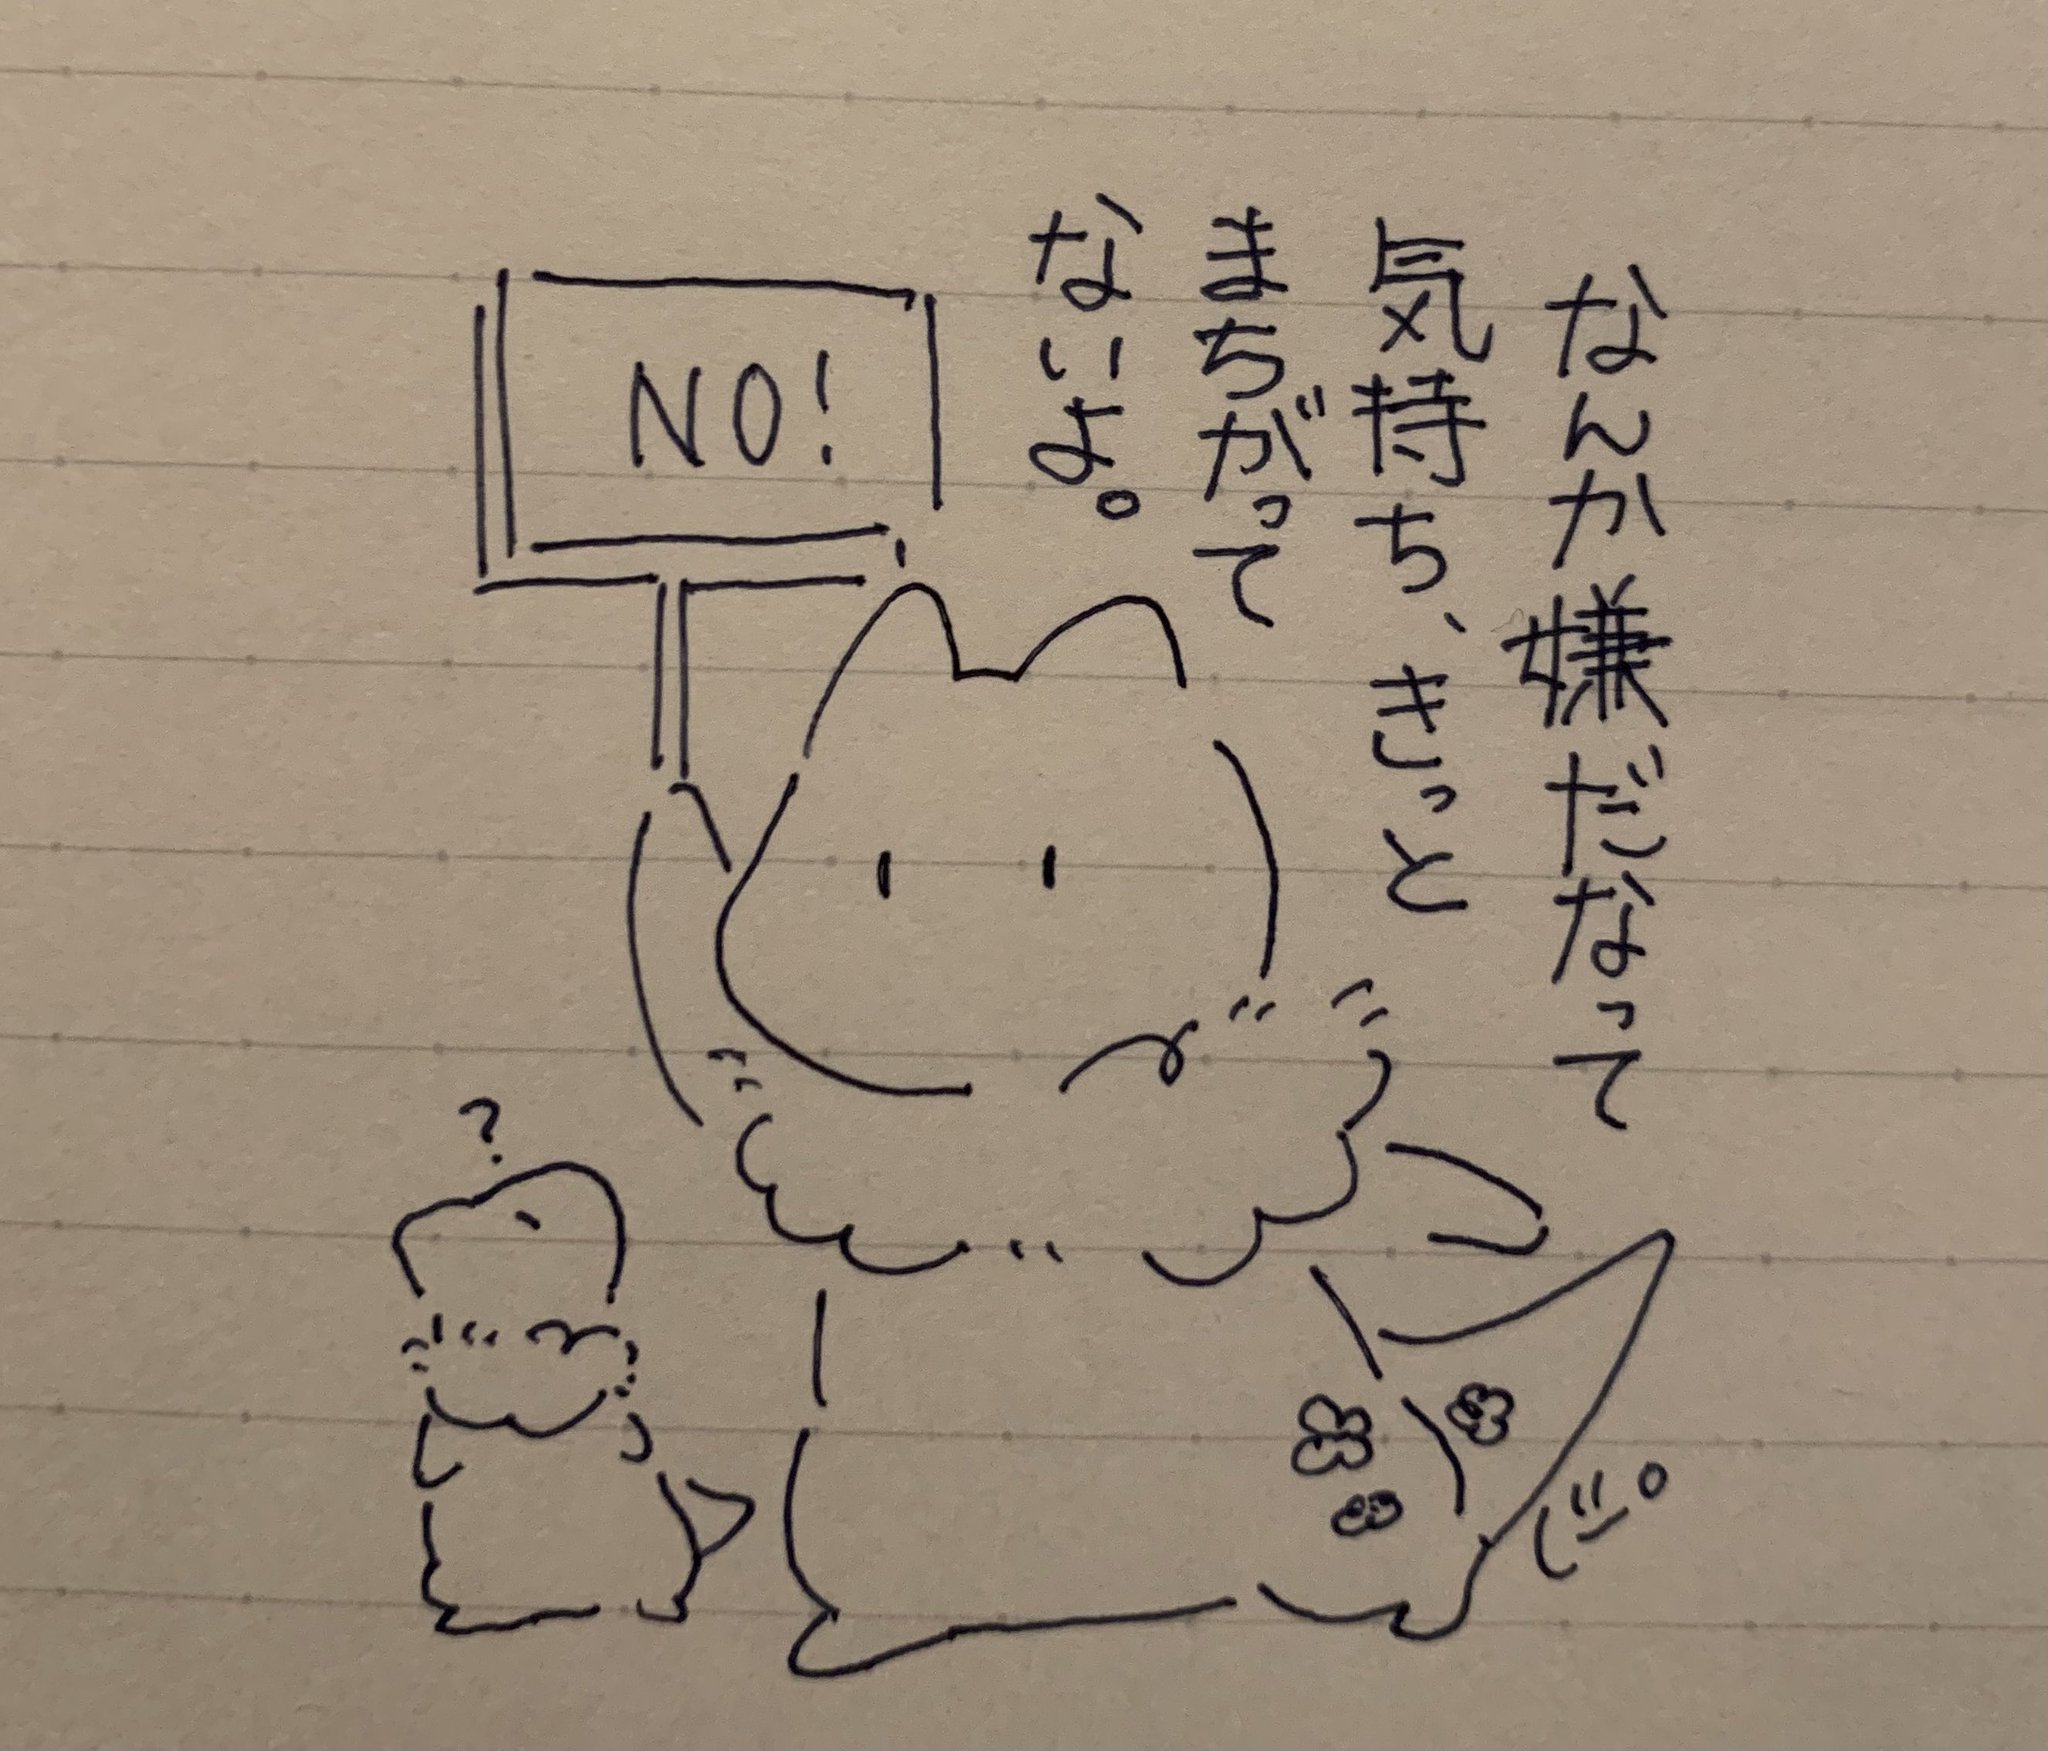 なんか嫌だなって
気持ち、きっと
まちがって
ないよ。
NO!
?